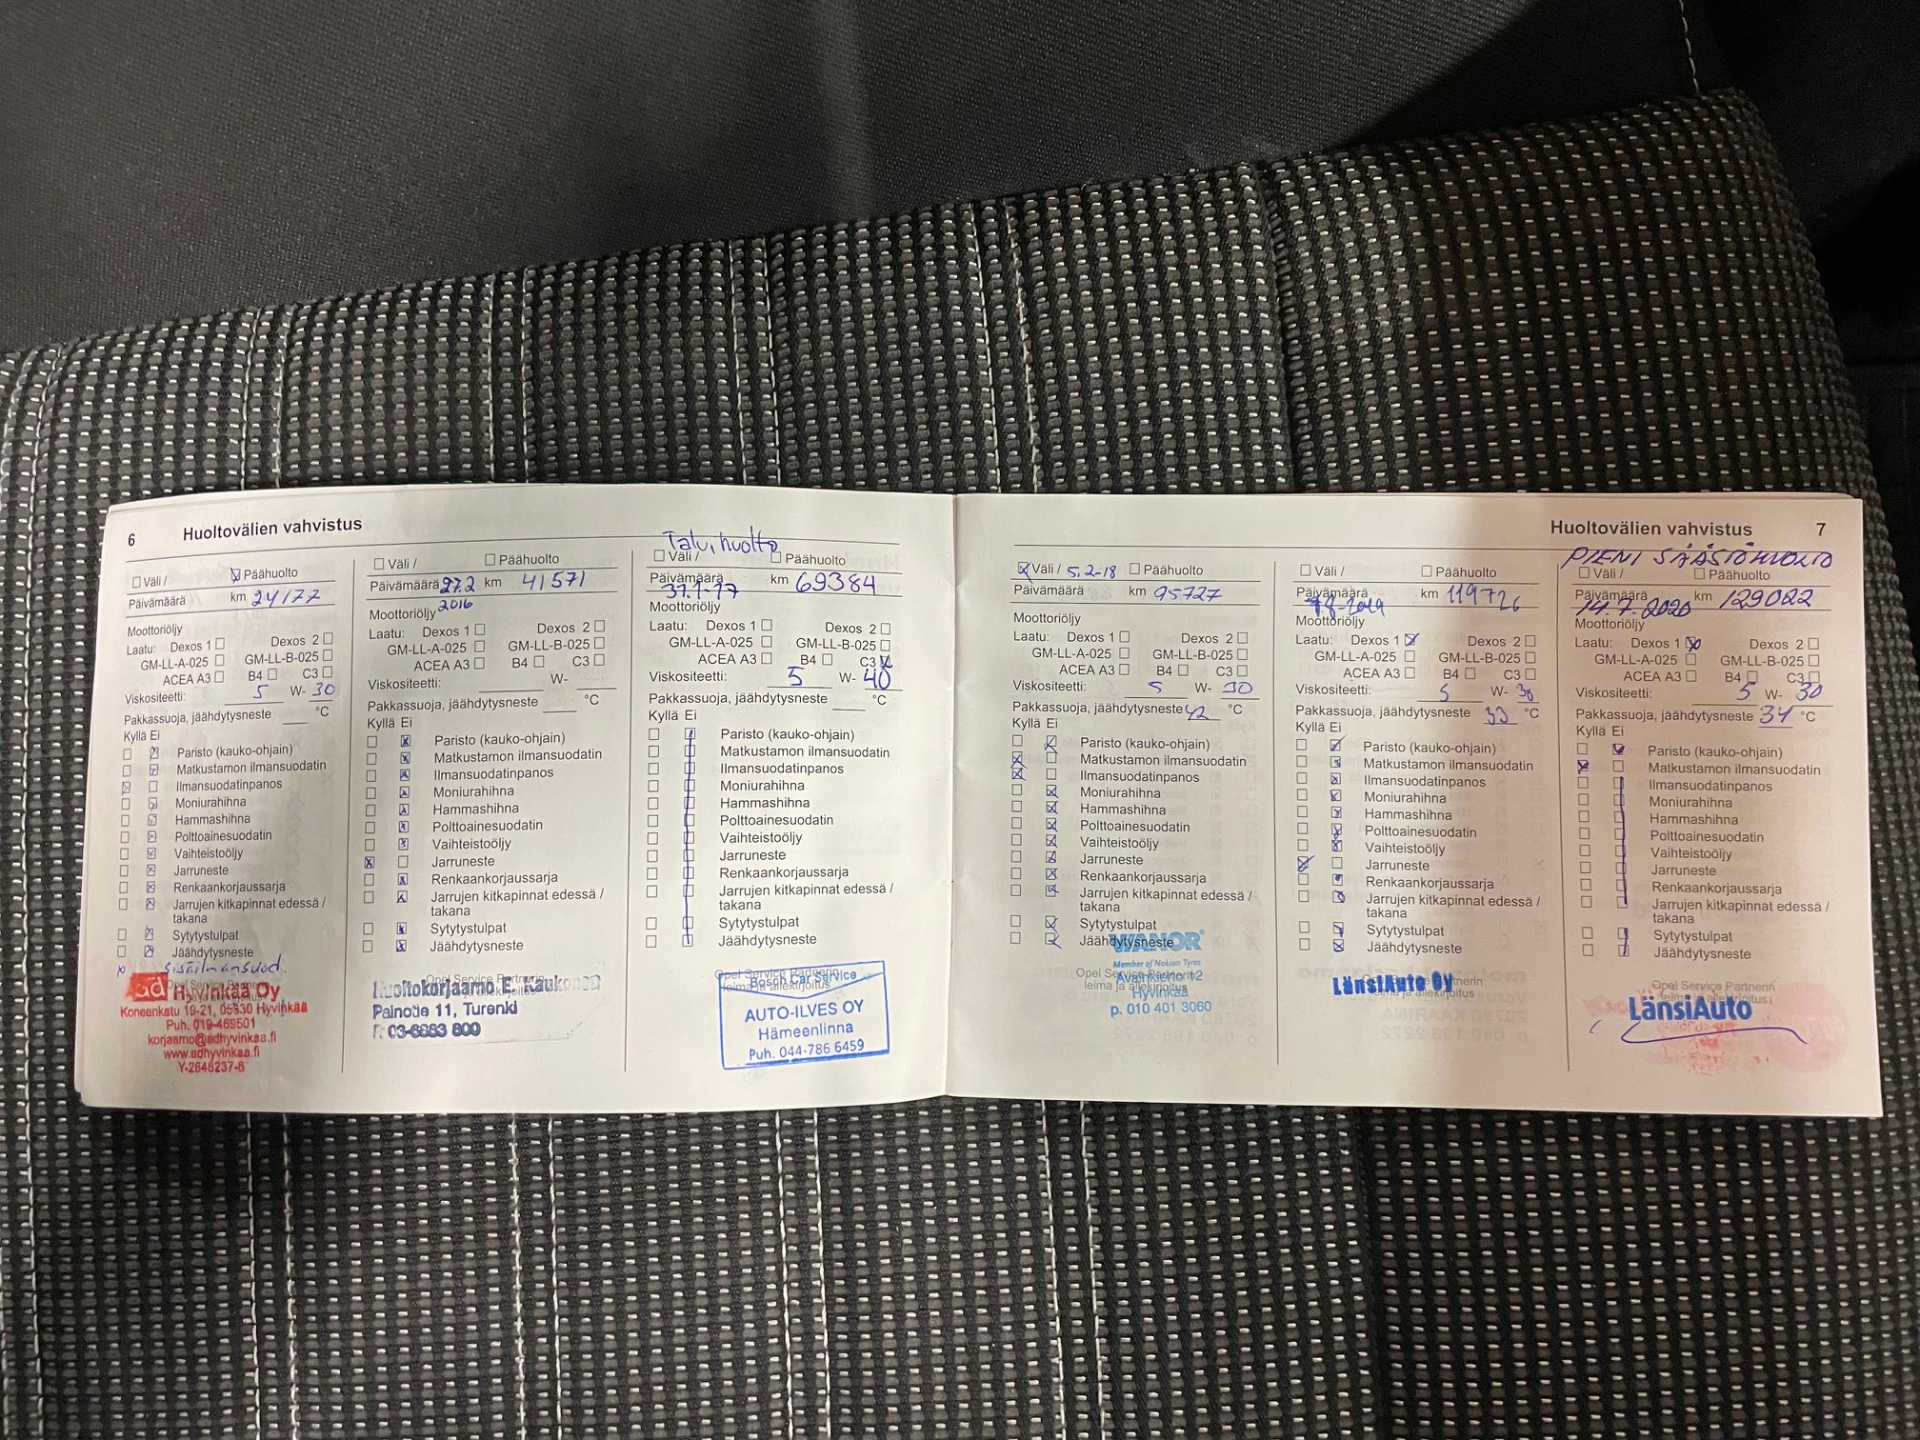 6 Huoltovälien vahvistus
☐ Väli / ☒ Päähuolto
Päivämäärä km 24177
Moottoriöljy
Laatu: Dexos 1 ☐ Dexos 2 ☐
GM-LL-A-025 ☐ GM-LL-B-025 ☐
ACEA A3 ☐ B4 ☐ C3 ☐
Viskositeetti: 5 W- 30
Pakkassuoja, jäähdytysneste ___ °C
Kyllä Ei
☐ ☒ Paristo (kauko-ohjain)
☐ ☒ Matkustamon ilmansuodatin
☒ ☐ Ilmansuodatinpanos
☐ ☒ Moniurahihna
☐ ☒ Hammashihna
☐ ☒ Polttoainesuodatin
☐ ☒ Vaihteistoöljy
☐ ☒ Jarruneste
☐ ☒ Renkaankorjaussarja
☐ ☒ Jarrujen kitkapinnat edessä /
takana
☐ ☒ Sytytystulpat
☐ ☒ Jäähdytysneste
x sisäilmansuod.
ad Hyvinkää Oy
Koneenkatu 19-21, 05830 Hyvinkää
Puh. 019-469501
korjaamo@adhyvinkaa.fi
www.adhyvinkaa.fi
Y-2648237-8
☐ Väli / ☐ Päähuolto
Päivämäärä 27.2 km 41571
2016
Moottoriöljy
Laatu: Dexos 1 ☐ Dexos 2 ☐
GM-LL-A-025 ☐ GM-LL-B-025 ☐
ACEA A3 ☐ B4 ☐ C3 ☐
Viskositeetti: ___ W- ___
Pakkassuoja, jäähdytysneste ___ °C
Kyllä Ei
☐ ☒ Paristo (kauko-ohjain)
☐ ☒ Matkustamon ilmansuodatin
☐ ☒ Ilmansuodatinpanos
☐ ☒ Moniurahihna
☐ ☒ Hammashihna
☐ ☒ Polttoainesuodatin
☐ ☒ Vaihteistoöljy
☒ ☐ Jarruneste
☐ ☒ Renkaankorjaussarja
☐ ☒ Jarrujen kitkapinnat edessä /
takana
☐ ☒ Sytytystulpat
☐ ☒ Jäähdytysneste
Opel Service Partnerin
Huoltokorjaamo E. Kaukonen
Painotie 11, Turenki
P. 03-6883 800
Talvihuolto
☐ Väli / ☐ Päähuolto
Päivämäärä km 69384
31.1-17
Moottoriöljy
Laatu: Dexos 1 ☐ Dexos 2 ☐
GM-LL-A-025 ☐ GM-LL-B-025 ☐
ACEA A3 ☐ B4 ☐ C3 ☒
Viskositeetti: 5 W- 40
Pakkassuoja, jäähdytysneste ___ °C
Kyllä Ei
☐ ☐ Paristo (kauko-ohjain)
☐ ☐ Matkustamon ilmansuodatin
☐ ☐ Ilmansuodatinpanos
☐ ☐ Moniurahihna
☐ ☐ Hammashihna
☐ ☐ Polttoainesuodatin
☐ ☐ Vaihteistoöljy
☐ ☐ Jarruneste
☐ ☐ Renkaankorjaussarja
☐ ☐ Jarrujen kitkapinnat edessä /
takana
☐ ☐ Sytytystulpat
☐ ☐ Jäähdytysneste
Opel Service Partnerin
leima ja allekirjoitus
Bosch Car Service
AUTO-ILVES OY
Hämeenlinna
Puh. 044-786 6459
Huoltovälien vahvistus 7
☒ Väli / 5.2-18 ☐ Päähuolto
Päivämäärä km 95727
Moottoriöljy
Laatu: Dexos 1 ☐ Dexos 2 ☐
GM-LL-A-025 ☐ GM-LL-B-025 ☐
ACEA A3 ☐ B4 ☐ C3 ☐
Viskositeetti: 5 W- 30
Pakkassuoja, jäähdytysneste 42 °C
Kyllä Ei
☐ ☒ Paristo (kauko-ohjain)
☒ ☐ Matkustamon ilmansuodatin
☒ ☐ Ilmansuodatinpanos
☐ ☒ Moniurahihna
☐ ☒ Hammashihna
☐ ☒ Polttoainesuodatin
☐ ☒ Vaihteistoöljy
☐ ☒ Jarruneste
☐ ☒ Renkaankorjaussarja
☐ ☒ Jarrujen kitkapinnat edessä /
takana
☐ ☒ Sytytystulpat
☐ ☒ Jäähdytysneste
VIANOR
Member of Nokian Tyres
Opel Service Partnerin
leima ja allekirjoitus
Avainkierto 12
Hyvinkää
p. 010 401 3060
☐ Väli / ☐ Päähuolto
Päivämäärä km 119726
7.8-2019
Moottoriöljy
Laatu: Dexos 1 ☒ Dexos 2 ☐
GM-LL-A-025 ☐ GM-LL-B-025 ☐
ACEA A3 ☐ B4 ☐ C3 ☐
Viskositeetti: 5 W- 30
Pakkassuoja, jäähdytysneste 33 °C
Kyllä Ei
☐ ☒ Paristo (kauko-ohjain)
☐ ☒ Matkustamon ilmansuodatin
☐ ☒ Ilmansuodatinpanos
☐ ☒ Moniurahihna
☐ ☒ Hammashihna
☐ ☒ Polttoainesuodatin
☐ ☒ Vaihteistoöljy
☒ ☐ Jarruneste
☐ ☒ Renkaankorjaussarja
☐ ☒ Jarrujen kitkapinnat edessä /
takana
☐ ☒ Sytytystulpat
☐ ☒ Jäähdytysneste
LänsiAuto Oy
PIENI SÄÄSTÖHUOLTO
☐ Väli / ☐ Päähuolto
Päivämäärä km 129022
14.7.2020
Moottoriöljy
Laatu: Dexos 1 ☒ Dexos 2 ☐
GM-LL-A-025 ☐ GM-LL-B-025 ☐
ACEA A3 ☐ B4 ☐ C3 ☐
Viskositeetti: 5 W- 30
Pakkassuoja, jäähdytysneste 34 °C
Kyllä Ei
☐ ☒ Paristo (kauko-ohjain)
☒ ☐ Matkustamon ilmansuodatin
☐ ☐ Ilmansuodatinpanos
☐ ☐ Moniurahihna
☐ ☐ Hammashihna
☐ ☐ Polttoainesuodatin
☐ ☐ Vaihteistoöljy
☐ ☐ Jarruneste
☐ ☐ Renkaankorjaussarja
☐ ☐ Jarrujen kitkapinnat edessä /
takana
☐ ☐ Sytytystulpat
☐ ☐ Jäähdytysneste
Opel Service Partnerin
leima ja allekirjoitus
LänsiAuto